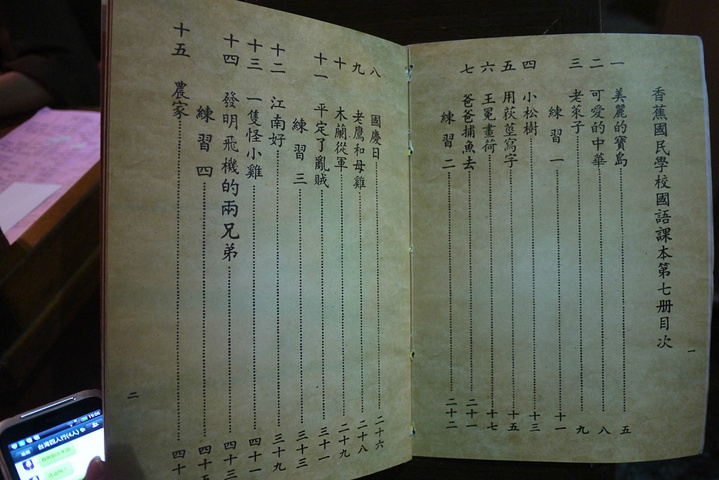 香蕉國民學校國語課本第七册目次
一 美麗的寶島 五
二 可愛的中華 八
三 老萊子 九
練習一 十一
四 小松樹 十三
五 用荻莖寫字 十五
六 王冕畫荷 十七
七 爸爸捕魚去 二十一
練習二 二十二
一
八 國慶日 二十六
九 老鷹和母雞 二十八
十 木蘭從軍 二十九
十一 平定了亂賊 三十一
練習三 三十三
十二 江南好 三十九
十三 一隻怪小雞 四十一
十四 發明飛機的兩兄弟 四十三
練習四 四十五
十五 農家 四十
二